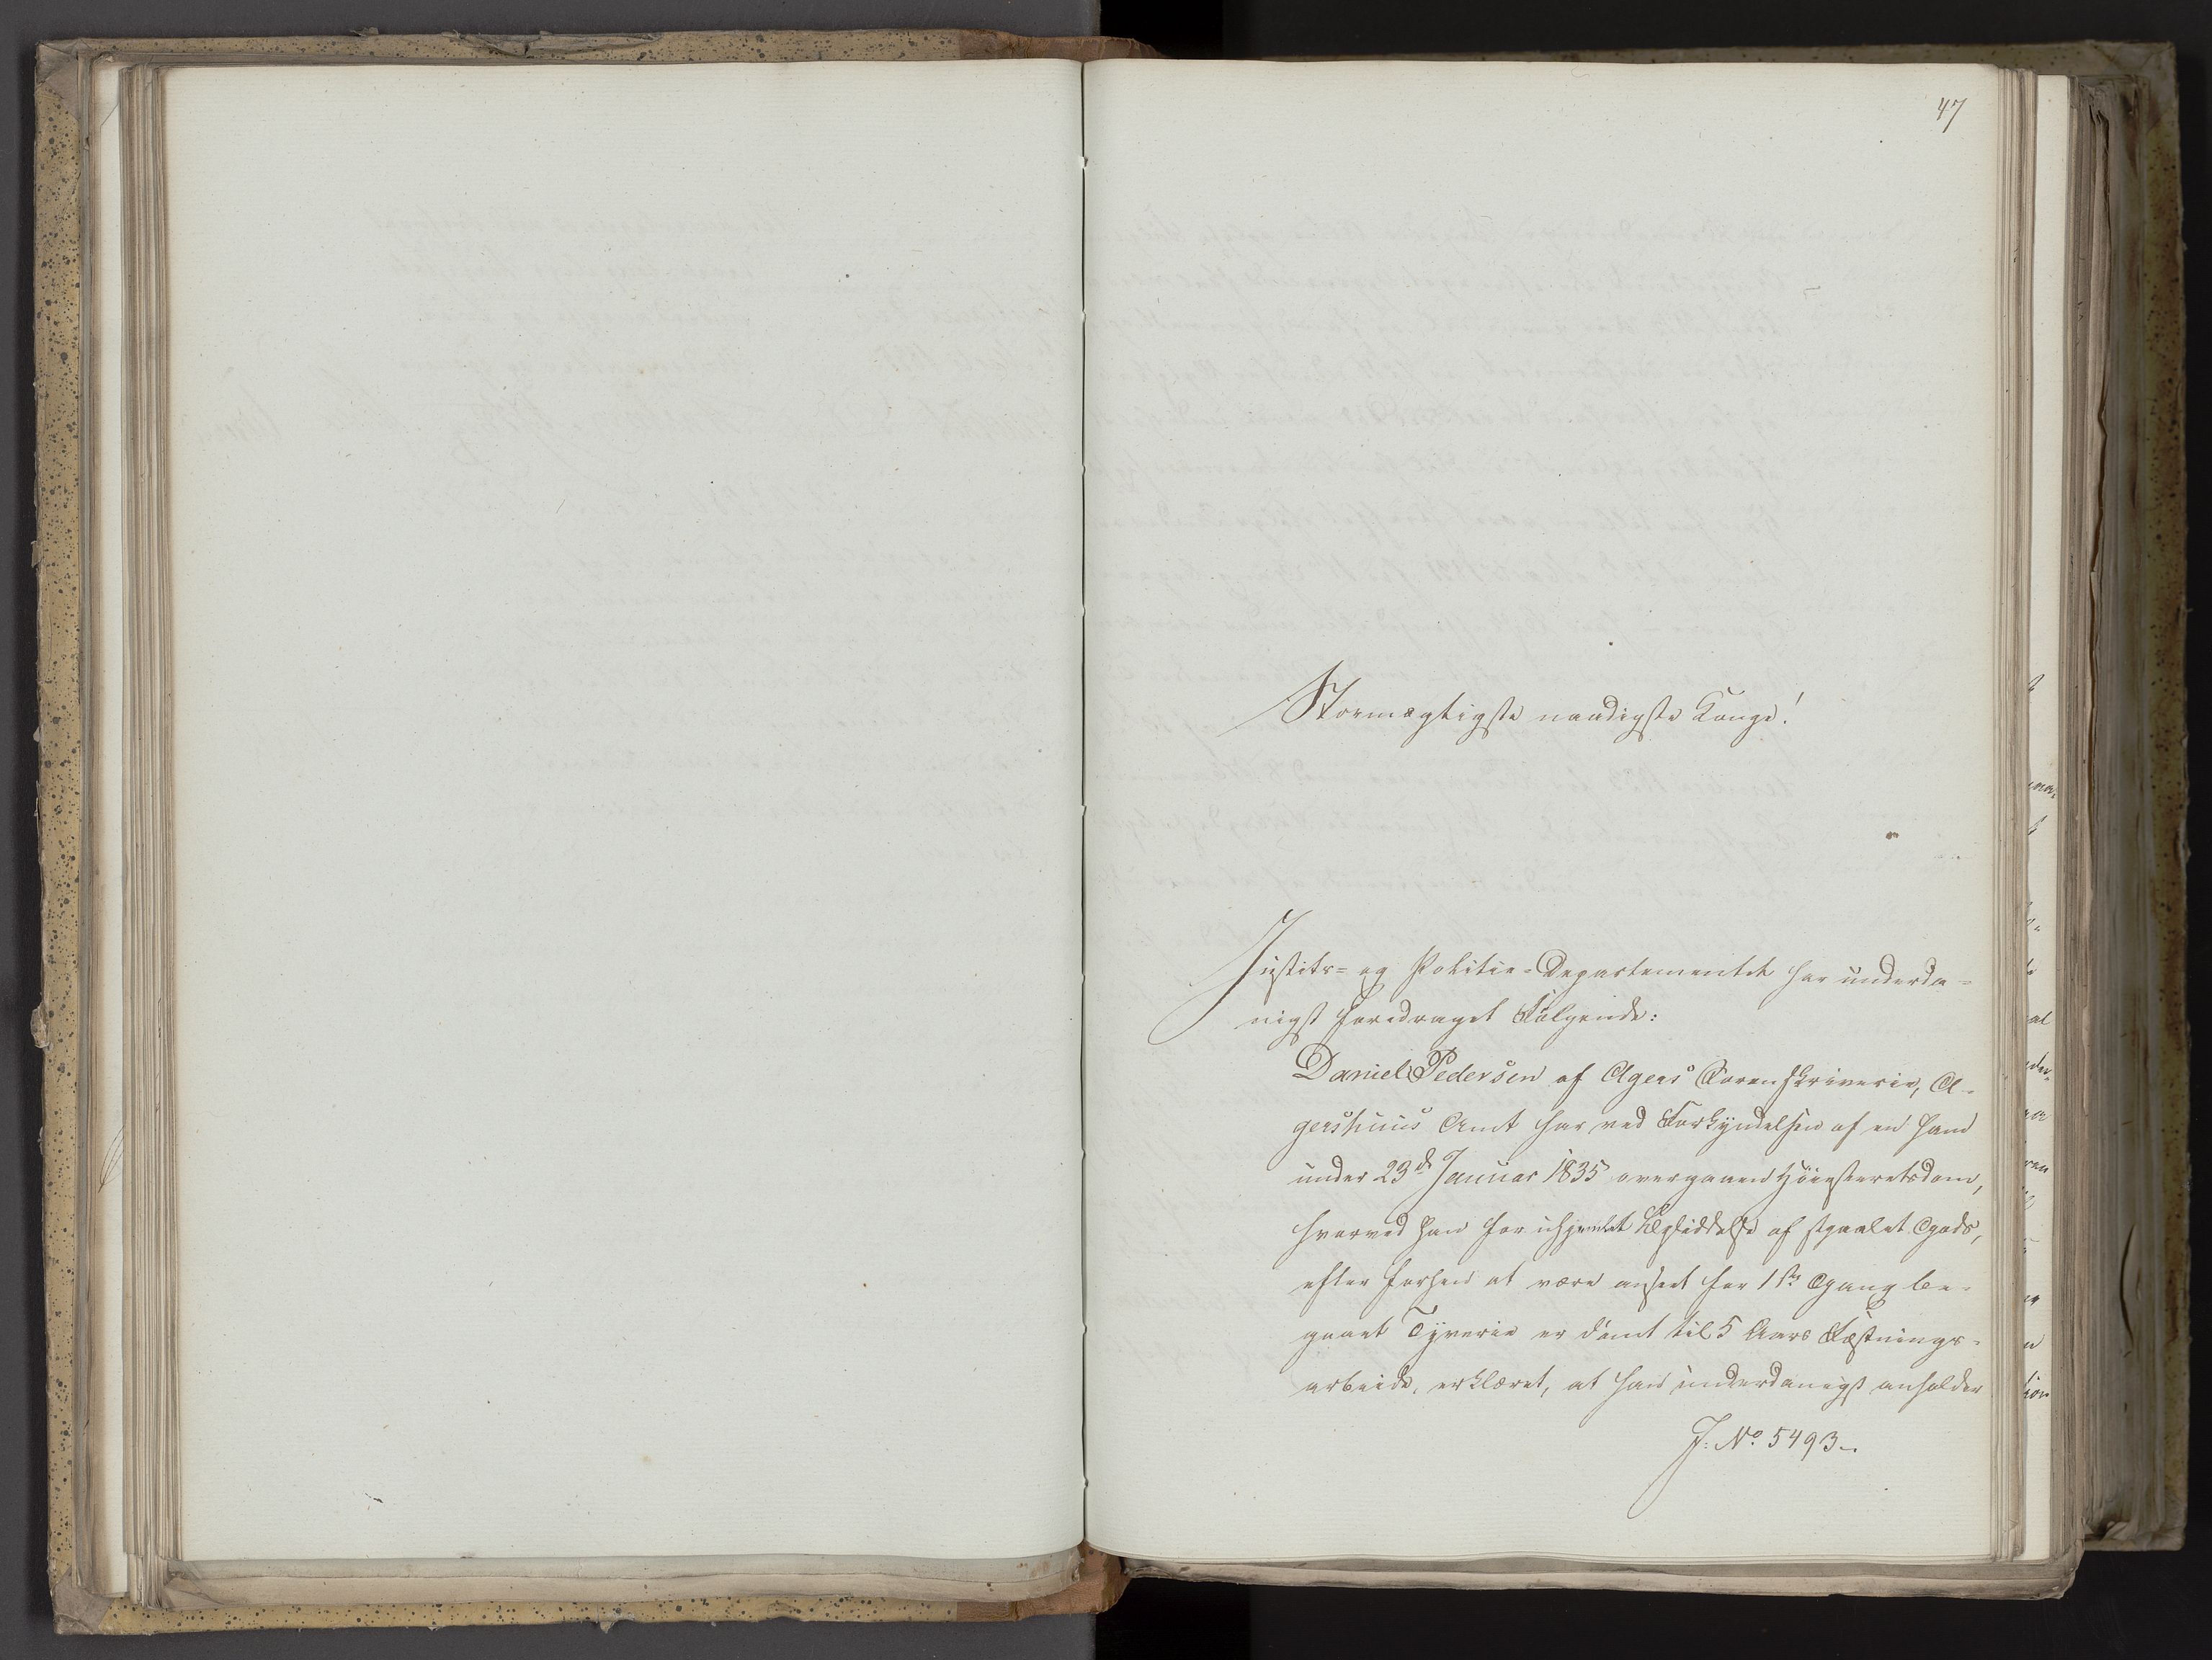 47
Stormægtigste naadigste Konge!
Justits- og Politie-Departementet har underda-
nigst foredraget Følgende:
Daniel Pedersen af Agers Sorenskriverie, A-
gershuus Amt har ved Forkyndelsen af en ham
under 23d Januar 1835 overgaaen Høiesteretsdom,
hvorved han for igjentat Besiddelse af stjaalet Gods,
efter forhen at være anseet for 1ste Gang be-
gaaet Tyverie er dømt til 5 Aars Fæstnings-
arbeide, erklæret, at han underdanigst anholder
J. No 5493.